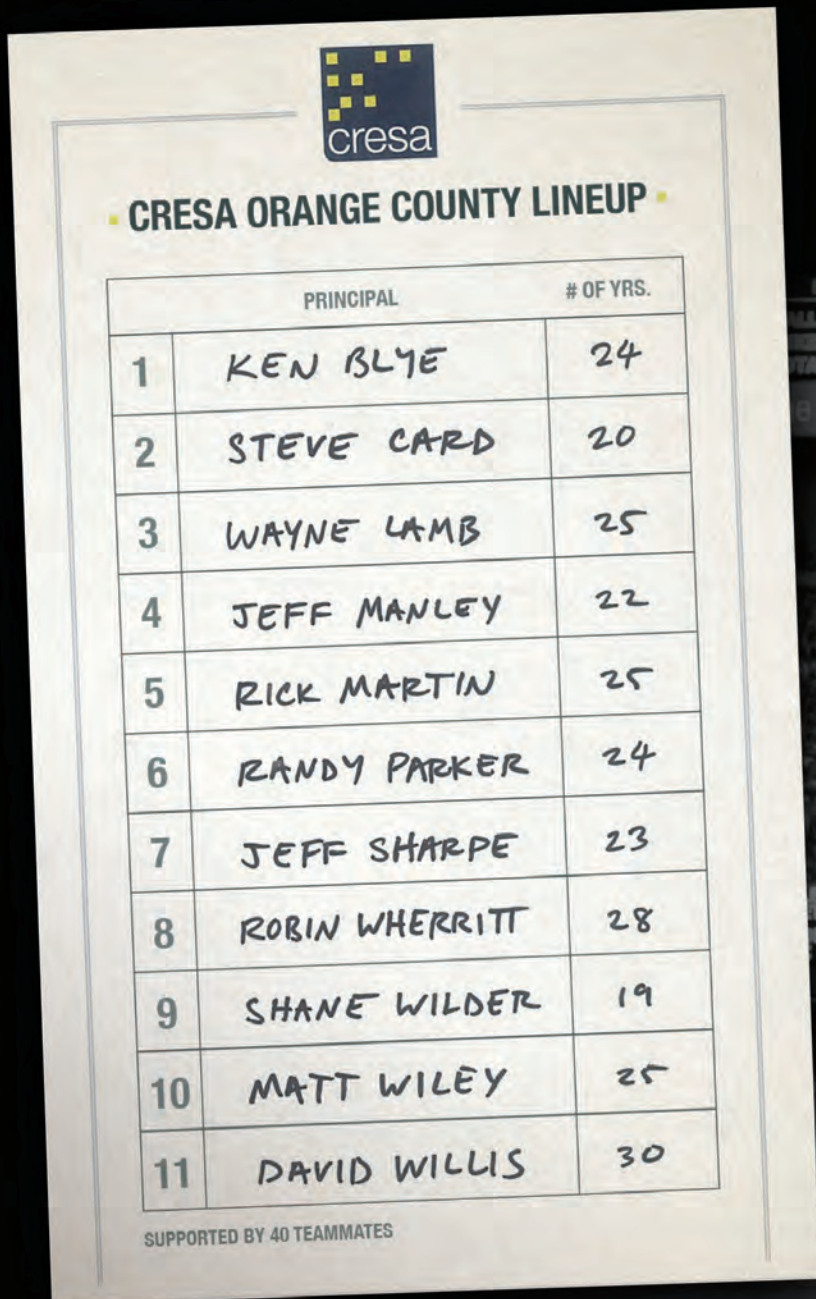 cresa
CRESA ORANGE COUNTY LINEUP
PRINCIPAL # OF YRS.
1 KEN BLYE 24
2 STEVE CARD 20
3 WAYNE LAMB 25
4 JEFF MANLEY 22
5 RICK MARTIN 25
6 RANDY PARKER 24
7 JEFF SHARPE 23
8 ROBIN WHERRITT 28
9 SHANE WILDER 19
10 MATT WILEY 25
11 DAVID WILLIS 30
SUPPORTED BY 40 TEAMMATES